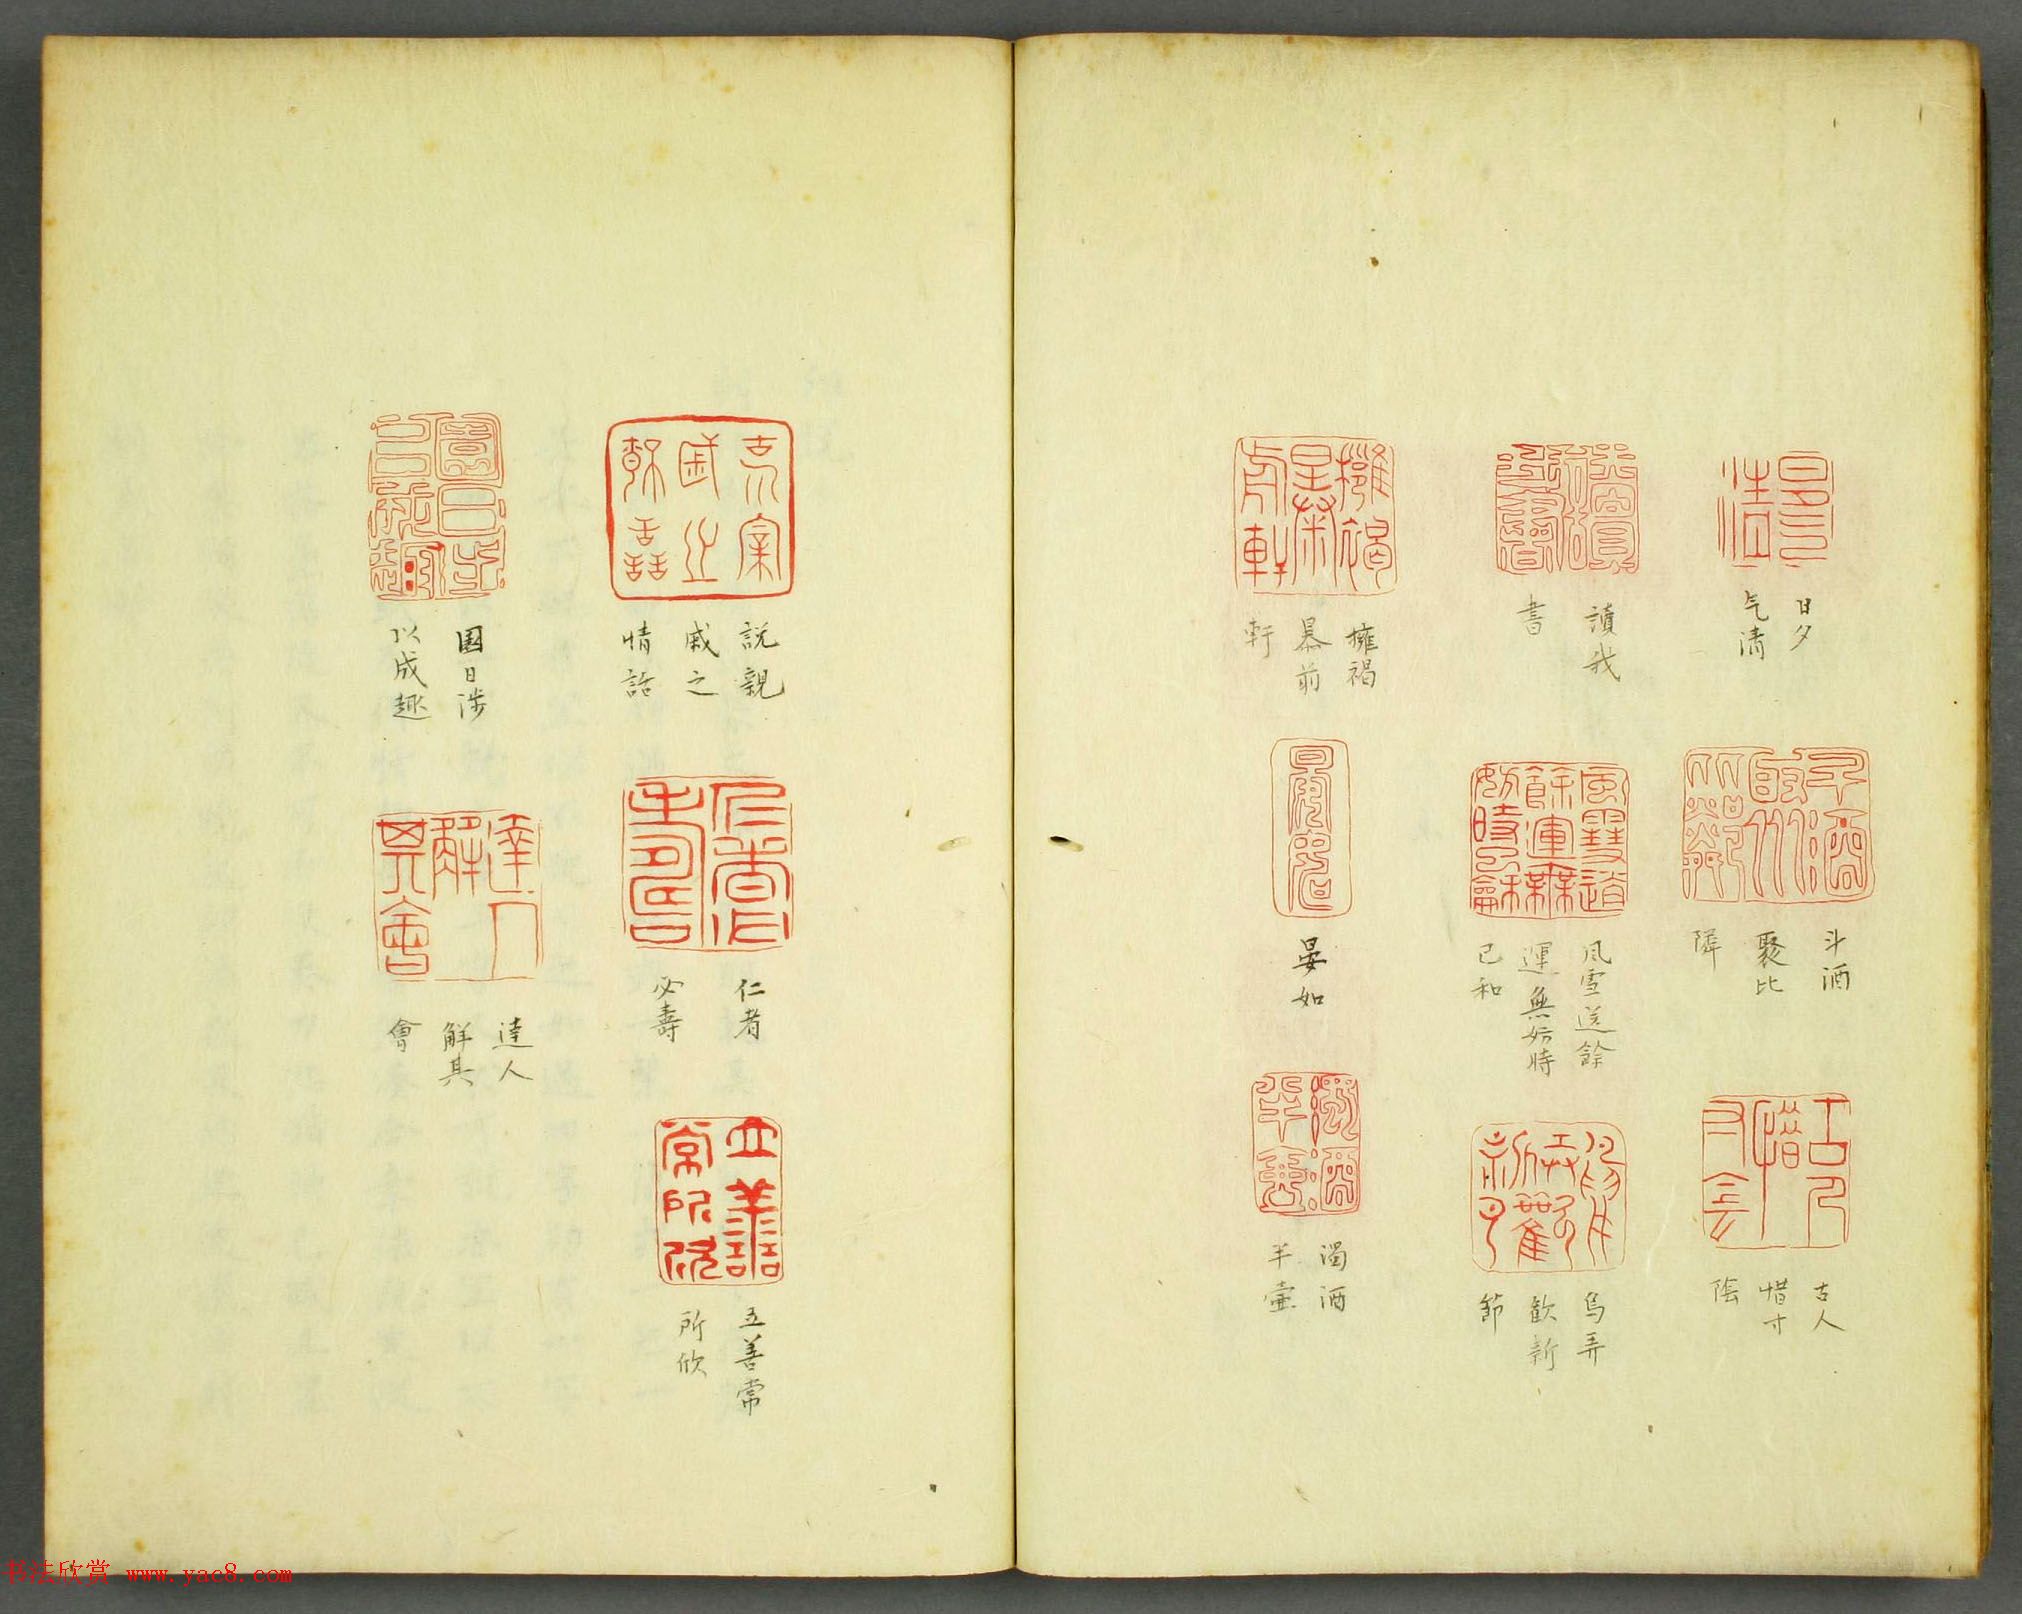 日夕
气清
斗酒
聚比
隣
古人
惜寸
陰
讀我
書
風雪送餘
運無妨時
已和
鳥弄
歡新
節
擁褐
暴前
軒
晏如
濁酒
半壷
説親
戚之
情話
仁者
必壽
五善常
所欣
園日涉
以成趣
達人
解其
會
书法欣赏 www.yac8.com